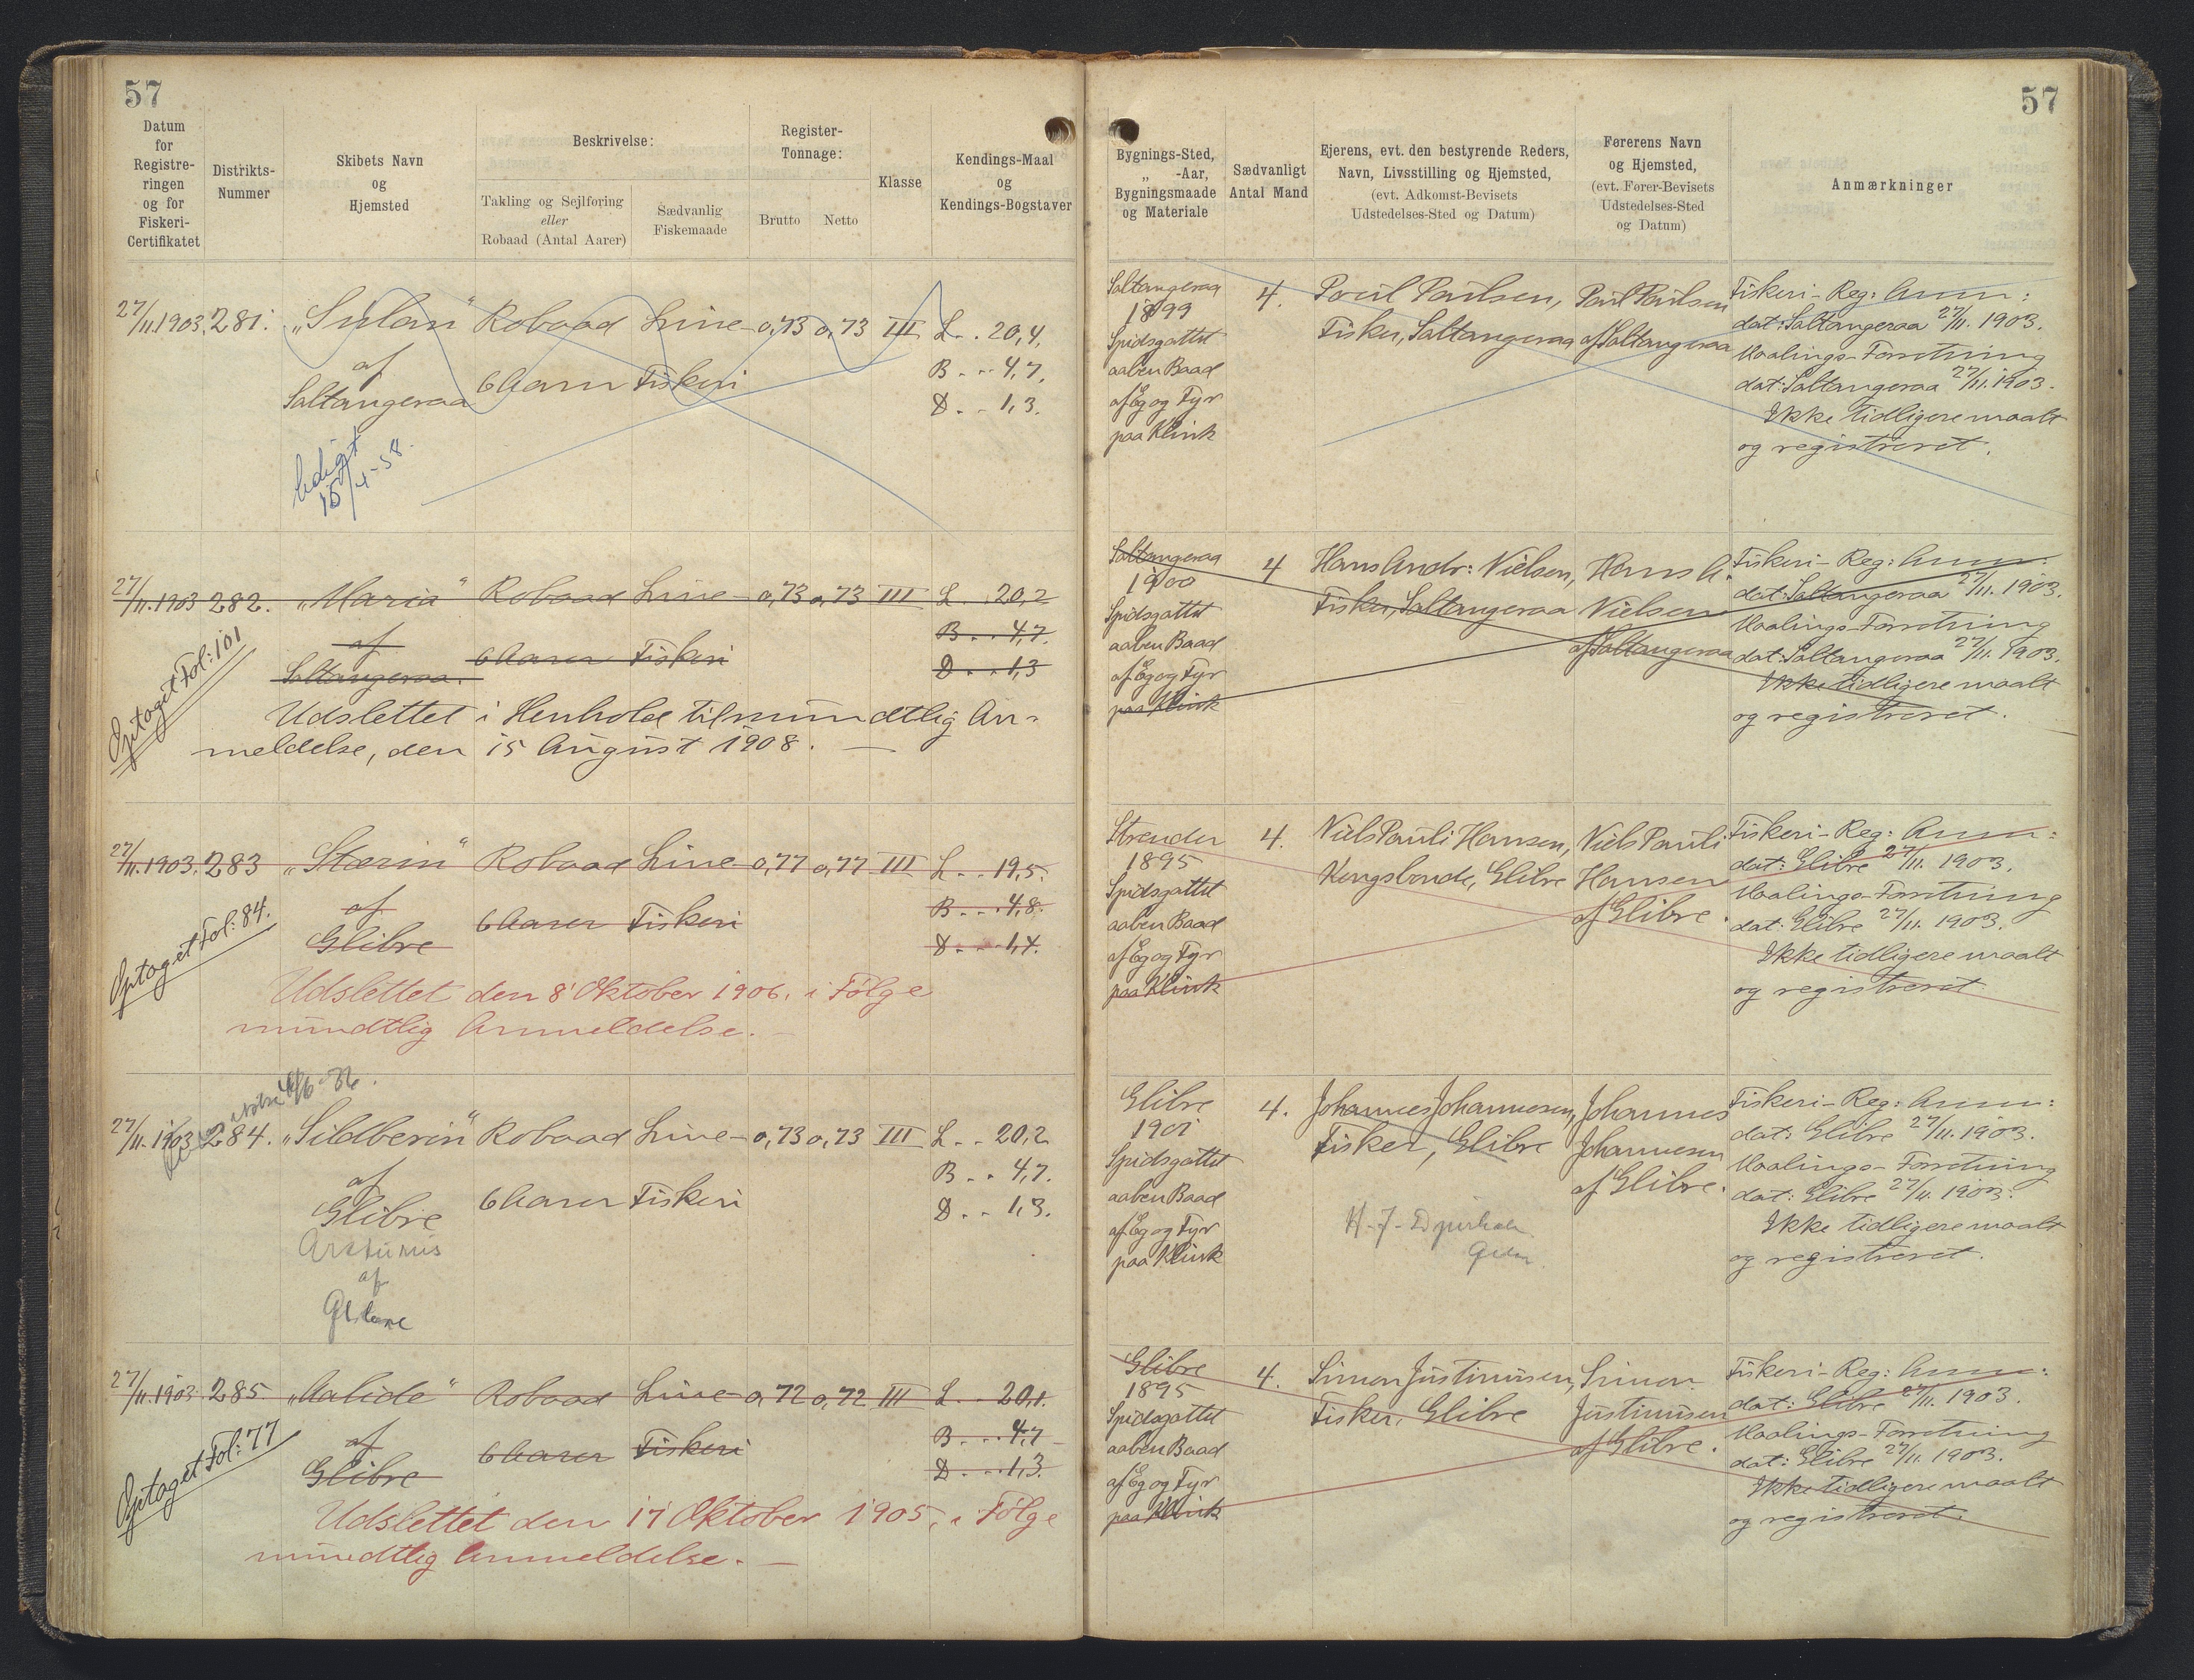 57
57
Datum
for
Registre-
ringen
og for
Fiskeri-
Certifikatet
Distrikts-
Nummer
Skibets Navn
og
Hjemsted
Beskrivelse:
Takling og Sejlføring
eller
Robaad (Antal Aarer)
Sædvanlig
Fiskemaade
Register-
Tonnage:
Brutto
Netto
Klasse
Kendings-Maal
og
Kendings-Bogstaver
Bygnings-Sted,
„ -Aar,
Bygningsmaade
og Materiale
Sædvanligt
Antal Mand
Ejerens, evt. den bestyrende Reders,
Navn, Livsstilling og Hjemsted,
(evt. Adkomst-Bevisets
Udstedelses-Sted og Datum)
Førerens Navn
og Hjemsted,
(evt. Fører-Bevisets
Udstedelses-Sted
og Datum)
Anmærkninger
27/11.1903. 281. „Sulan“ Robaad Line- 0,73 0,73 III L.. 20,4.
af 6 Aarer Fiskeri B... 4,7.
Saltangeraa D... 1,3.
15/4-58.
Saltangeraa
1899
Spidsgattet
aaben Baad
af Eg og Fyr
paa Klink
4.
Poul Poulsen,
Fisker, Saltangeraa
Poul Poulsen
af Saltangeraa
Fiskeri-Reg: Anm:
dat: Saltangeraa 27/11. 1903.
Maalings-Forretning
dat: Saltangeraa 27/11. 1903.
Ikke tidligere maalt
og registreret.
27/11.1903 282. „Maria“ Robaad Line- 0,73 0,73 III L.. 20,2
af 6 Aarer Fiskeri B... 4,7.
Saltangeraa. D... 1,3
Optaget Fol: 101
Udslettet i Henhold til mundtlig An-
meldelse, den 15 August 1908. —
Saltangeraa
1900
Spidsgattet
aaben Baad
af Eg og Fyr
paa Klink
4
Hans Andr: Nielsen,
Fisker, Saltangeraa
Hans A.
Nielsen
af Saltangeraa
Fiskeri-Reg: Anm:
dat: Saltangeraa 27/11. 1903.
Maalings-Forretning
dat: Saltangeraa 27/11. 1903.
Ikke tidligere maalt
og registreret.
27/11.1903. 283 „Stærin“ Robaad Line- 0,77 0,77 III L... 19,5.
af 6 Aarer Fiskeri B... 4,8.
Glibre D... 1,4.
Optaget Fol: 84.
Udslettet den 8' Oktober 1906, i Følge
mundtlig Anmeldelse. —
Strender
1895
Spidsgattet
aaben Baad
af Eg og Fyr
paa Klink
4.
Niels Pauli Hansen,
Kongsbonde, Glibre
Niels Pauli
Hansen
af Glibre.
Fiskeri-Reg: Anm:
dat: Glibre 27/11. 1903.
Maalings-Forretning
dat: Glibre 27/11. 1903.
Ikke tidligere maalt
og registreret.
27/11.1903 284. „Sildberin“ Robaad Line- 0,73 0,73 III L.. 20,2
af 6 Aarer Fiskeri B... 4,7.
Glibre D... 1,3.
af
Glibre
1901
Spidsgattet
aaben Baad
af Eg og Fyr
paa Klink
4.
Johannes Johannesen,
Fisker, Glibre
Johannes
Johannesen
af Glibre.
Fiskeri-Reg: Anm:
dat: Glibre 27/11. 1903.
Maalings-Forretning
dat: Glibre 27/11. 1903.
Ikke tidligere maalt
og registreret.
27/11.1903 285 „Aalide“ Robaad Line- 0,72 0,72 III L... 20,1.
af 6 Aarer Fiskeri B... 4,7
Glibre D... 1,3.
Optaget Fol: 77
Udslettet den 17 Oktober 1905, i Følge
mundtlig Anmeldelse. —
Glibre
1895
Spidsgattet
aaben Baad
af Eg og Fyr
paa Klink
4.
Simon Justinusen,
Fisker, Glibre
Simon
Justinusen
af Glibre.
Fiskeri-Reg: Anm:
dat: Glibre 27/11. 1903.
Maalings-Forretning
dat: Glibre 27/11. 1903.
Ikke tidligere maalt
og registreret.